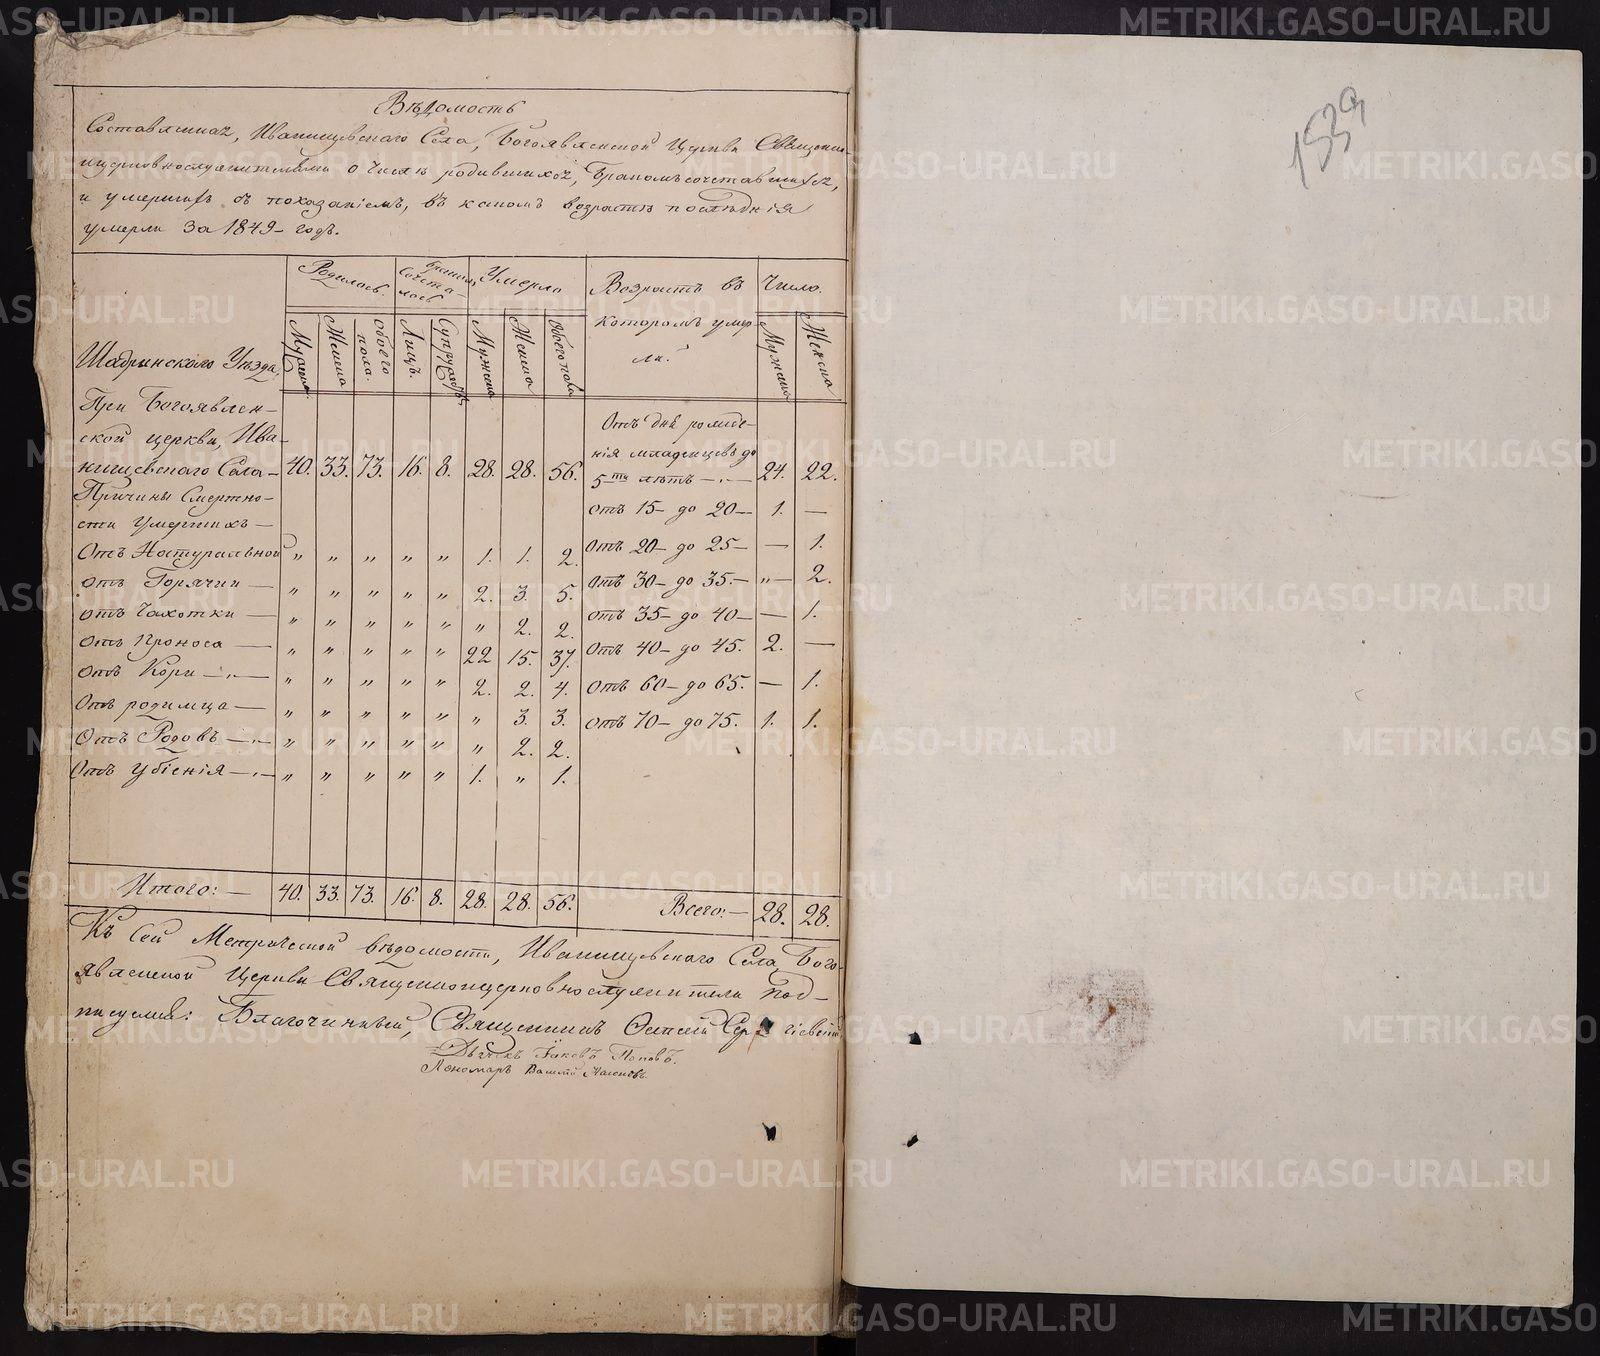 Вѣдомость
Составленная, Иванищевскаго Села, Богоявленской Церкви Священно-
ицерковнослужителями о числѣ родившихся, Бракомъсочетавшихся,
и умершихъ съ показаніемъ, въ какомъ возрастѣ послѣднія
умерли За 1849- годъ.
Шадринскаго Уѣзда,
Родилось. Бракомъ Сочета-лось Умерло Возрастъ въ которомъ умер-ли. Число.
Мужеска Женска Обоего пола. Лицъ. Супружествъ Мужеска Женска Обоего пола Мужеска Женска
При Богоявлен-
ской церкви, Ива-
нищевскаго Села- 40. 33. 73. 16. 8. 28. 28. 56.
Причины Смертно-
сти Умершихъ —
Отъ Натуральной " " " " " 1. 1. 2.
отъ Горячки — " " " " " 2. 3. 5.
отъ Чахотки — " " " " " " 2. 2.
Отъ Проноса — " " " " " 22 15. 37.
Отъ Кори — " " " " " 2. 2. 4.
Отъ родимца — " " " " " " 3. 3.
Отъ Родовъ — " " " " " " 2. 2.
Отъ Убіенія — " " " " " 1. " 1.
Отъ дня рожде-
нія младенцевъ до
5-ти лѣтъ — 24. 22.
отъ 15- до 20- 1. —
Отъ 20- до 25- — 1.
Отъ 30- до 35.- "— 2.
отъ 35- до 40- — 1.
Отъ 40- до 45. 2. —
Отъ 60- до 65. — 1.
отъ 70- до 75. 1. 1.
Итого:— 40. 33. 73. 16. 8. 28. 28. 56. Всего:— 28. 28.
Къ Сей Метрической вѣдомости, Иванищевскаго Села Бого-
явленской Церкви Священноицерковнослужители Под-
писуемся: Благочинный, Священникъ
Дьячекъ Іаковъ Поповъ.
Пономарь
1539
METRIKI.GASO-URAL.RU